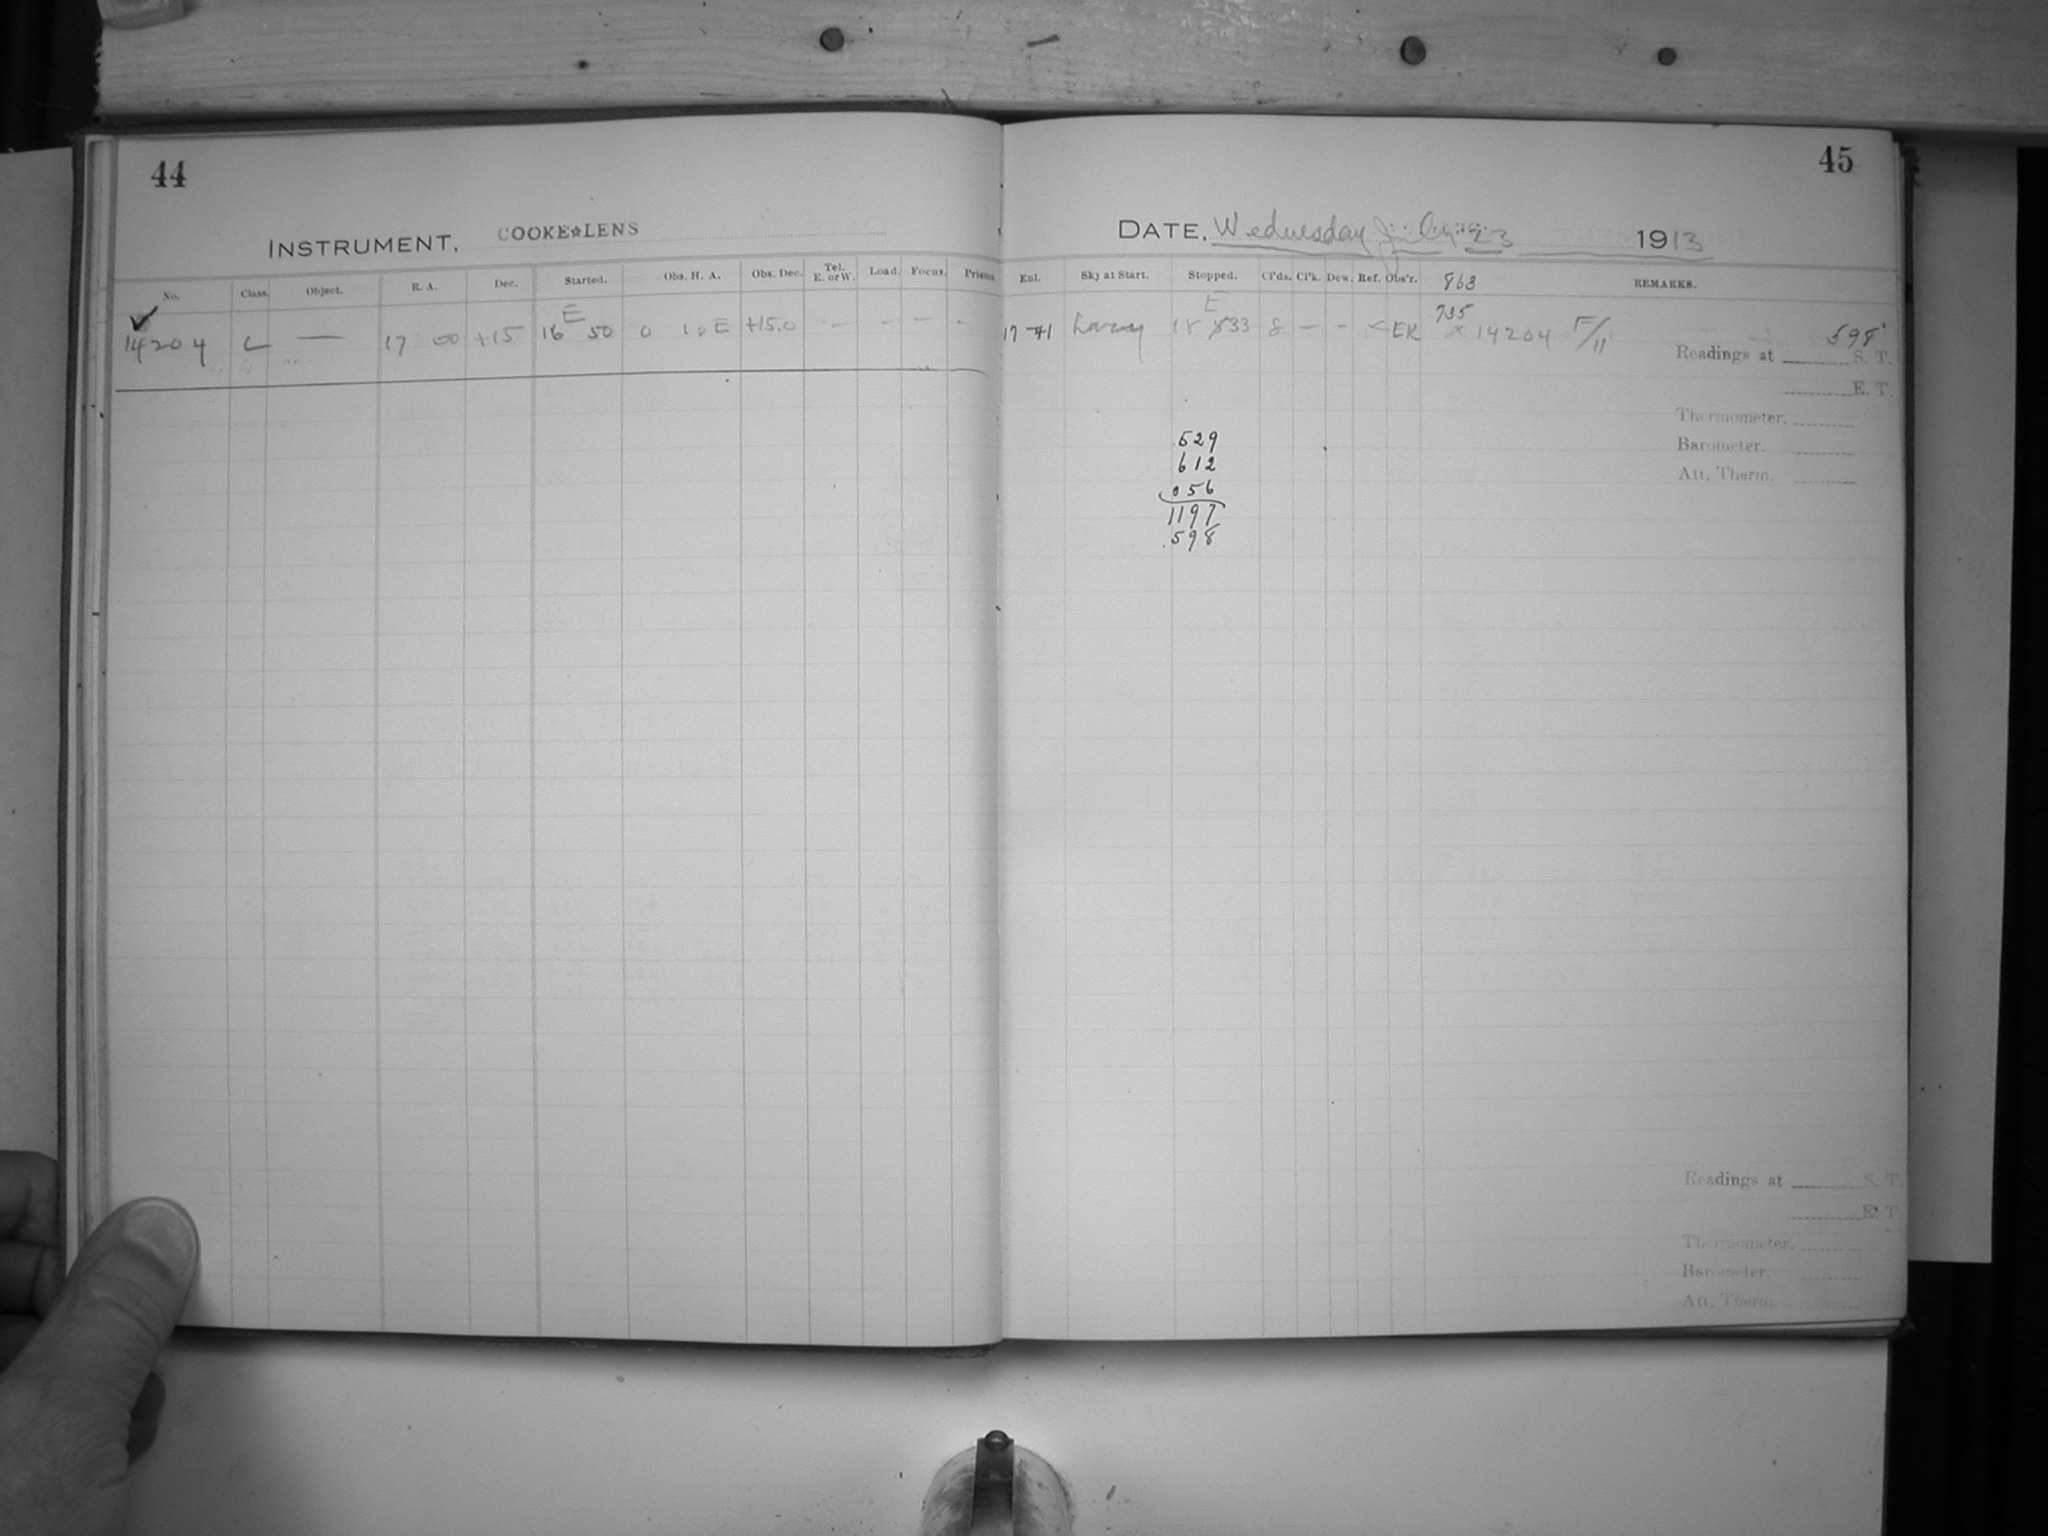 44
INSTRUMENT, COOKE☆LENS
No. Class. Object. R. A. Dec. Started. Obs. H. A. Obs. Dec. Tel. E. or W. Load. Focus. Prisms
E
✓
14204 L — 17 00 +15 16 50 0 10 E +15.0 — - - -
45
DATE, Wednesday July 23 1913
Enl. Sky at Start. Stopped. Cl'ds. Cl'k. Dew. Ref. Obs'r. 863 REMARKS.
E
735
598
17 41 18 33 8 - - < EK x 14204 F/11
Readings at S. T.
E. T.
Thermometer,
Barometer.
Att. Therm.
.529
612
056
1197
.598
Readings at S. T.
E. T.
Thermometer.
Barometer.
Att. Therm.